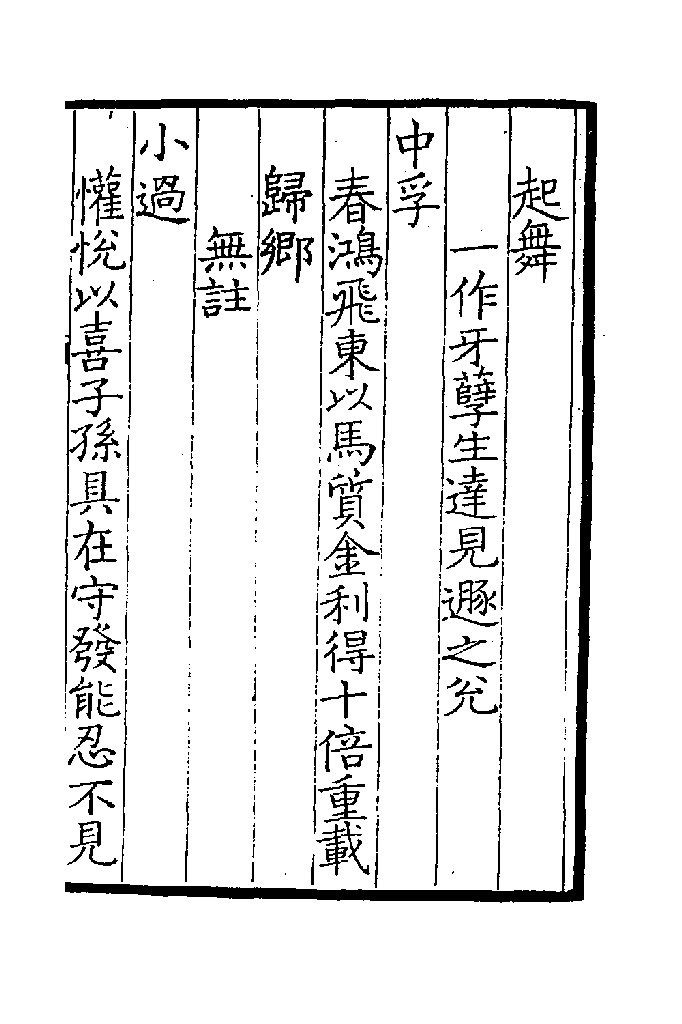 起舞
一作牙孽生達見遯之兊
中孚
春鴻飛東以馬質金利得十倍重載
歸鄉
無註
小過
懽悅以喜子孫具在守發能忍不見